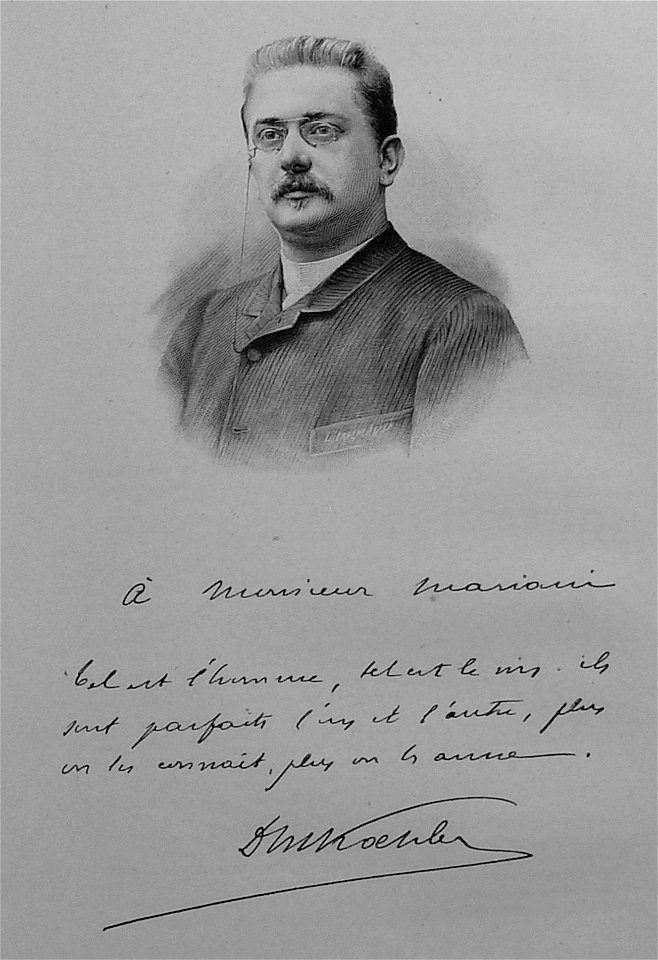 À Monsieur Mariani
Tel est l'homme, tel est le vin. ils
sont parfaits l'un et l'autre, plus
on les connaît, plus on les aime.
Koehler